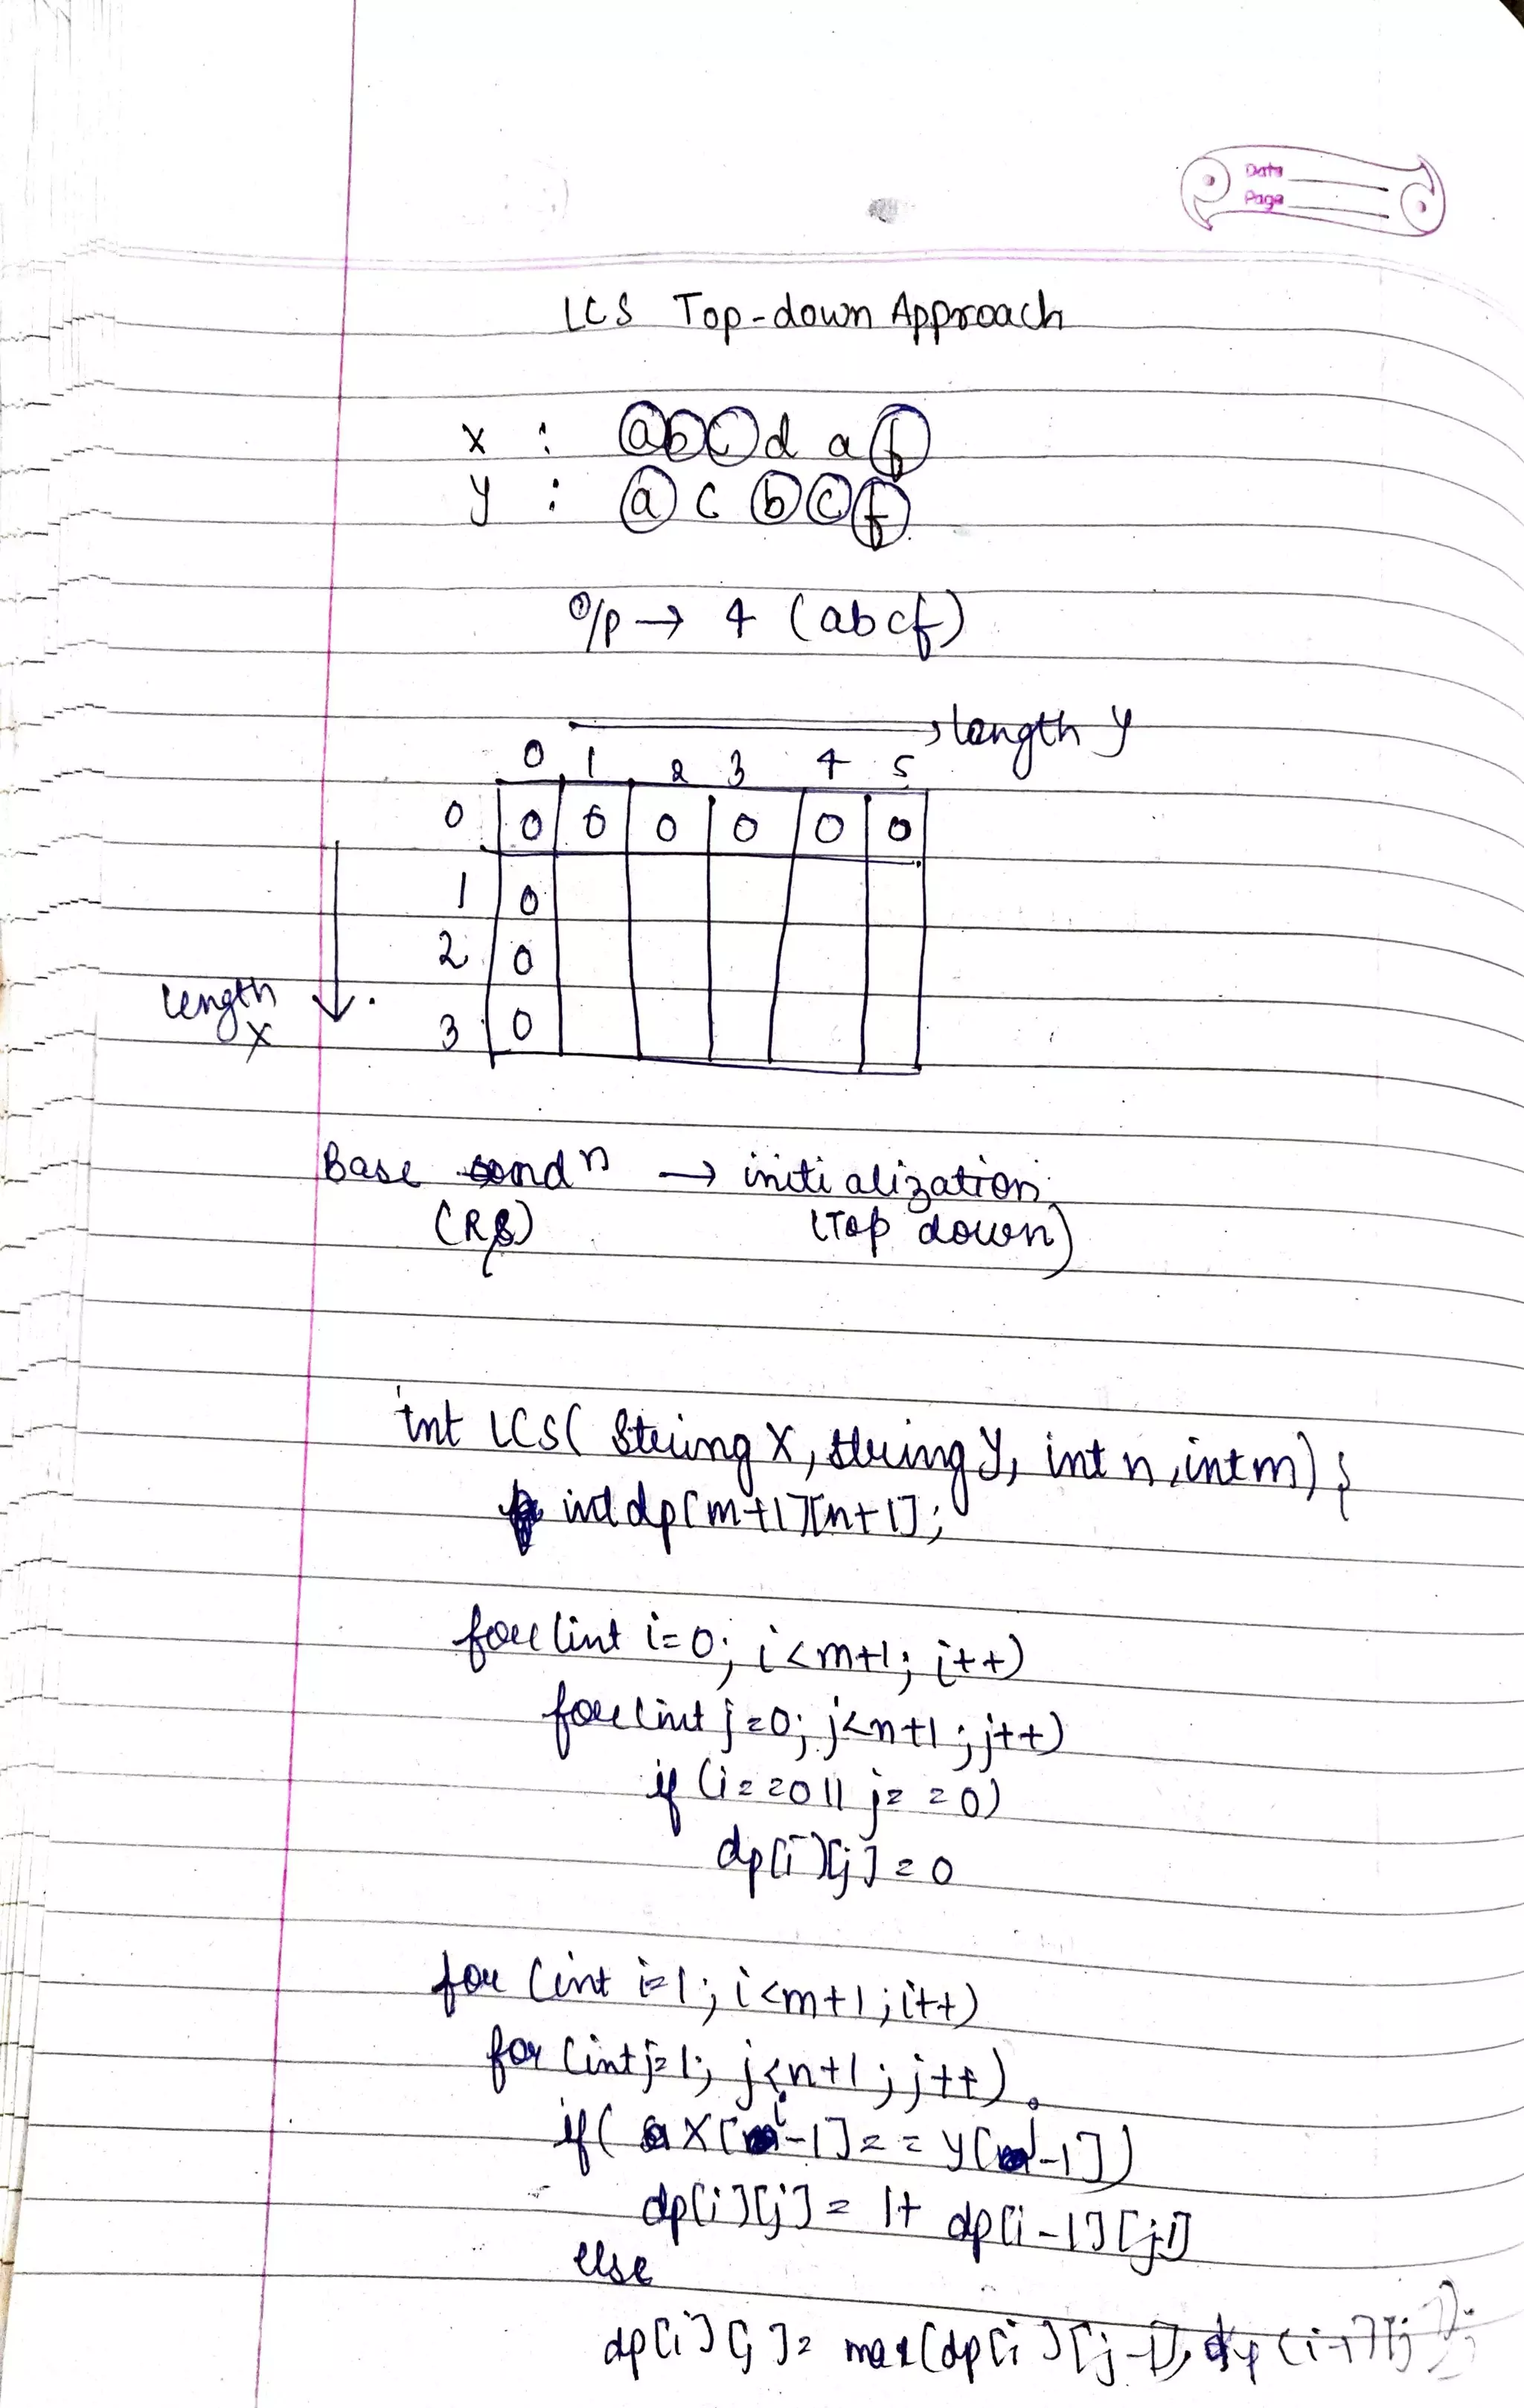 Date
Page
LCS Top-down Approach
X : a b c d a f
Y : a c b c f
O/P → 4 (abcf)
→ length Y
0 1 2 3 4 5
0 0 0 0 0 0 0
1 0
2 0
length X
3 0
Base condn → initialization
(RS) (Top down)
int LCS( String X, string Y, int n, int m) {
int dp[m+1][n+1];
for (int i=0; i<m+1; i++)
for (int j=0; j<n+1; j++)
if (i==0 || j==0)
dp[i][j] = 0
for (int i=1; i<m+1; i++)
for (int j=1; j<n+1; j++)
if( X[i-1] == Y[j-1])
dp[i][j] = 1+ dp[i-1][j-1]
else
dp[i][j] = max(dp[i][j-1], dp[i-1][j]);